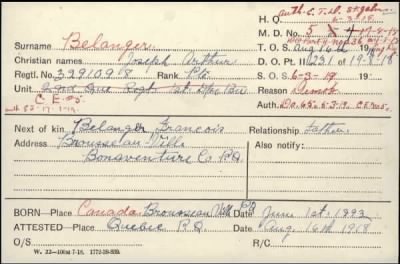 Auth. C.T.D. St. John
H. Q. 6-3-19
M. D. No. 5
Surname Belanger
T. O. S. Aug 16th 19
Christian names Joseph Arthur
D. O. Pt. II 231 of 19-8-18
Regtl. No. 3291098 Rank Pte
S. O. S. 6-3-19 19
Unit 2nd Que Regt 1st Dep Bn
Reason Demob
C.E.F.
Auth. D.O. 65. 6-3-19. C.E.F. No. 5.
Next of kin Belanger Francois
Relationship Father
Address Brousseau Ville
Also notify:
Bonaventure Co P.Q.
BORN—Place Canada Brousseau Ville PQ Date June 1st. 1893
ATTESTED—Place Quebec P.Q. Date Aug 16th 1918
O/S
R/C
W. 22—100M 7-18. 1772-39-839.